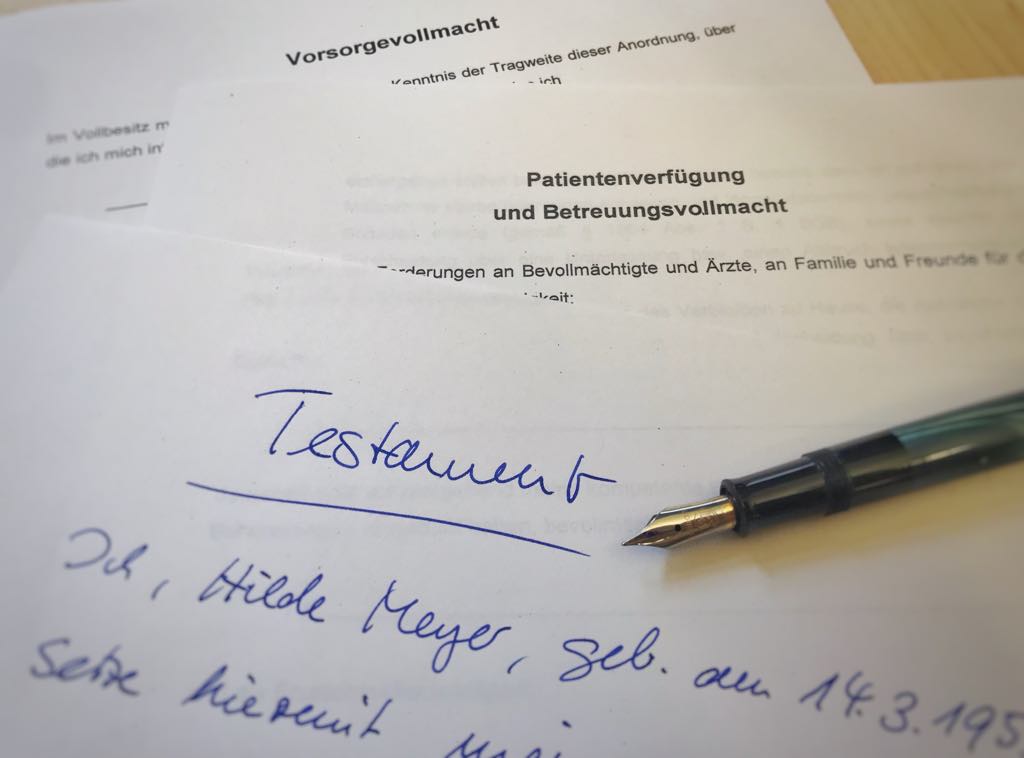 Vorsorgevollmacht
Kenntnis der Tragweite dieser Anordnung, über
ich
Im Vollbesitz m
die ich mich in
Patientenverfügung
und Betreuungsvollmacht
orderungen an Bevollmächtigte und Ärzte, an Familie und Freunde für d
keit:
Testament
Ich, Hilde Meyer, geb. am 14.3.195
setze hiermit mei